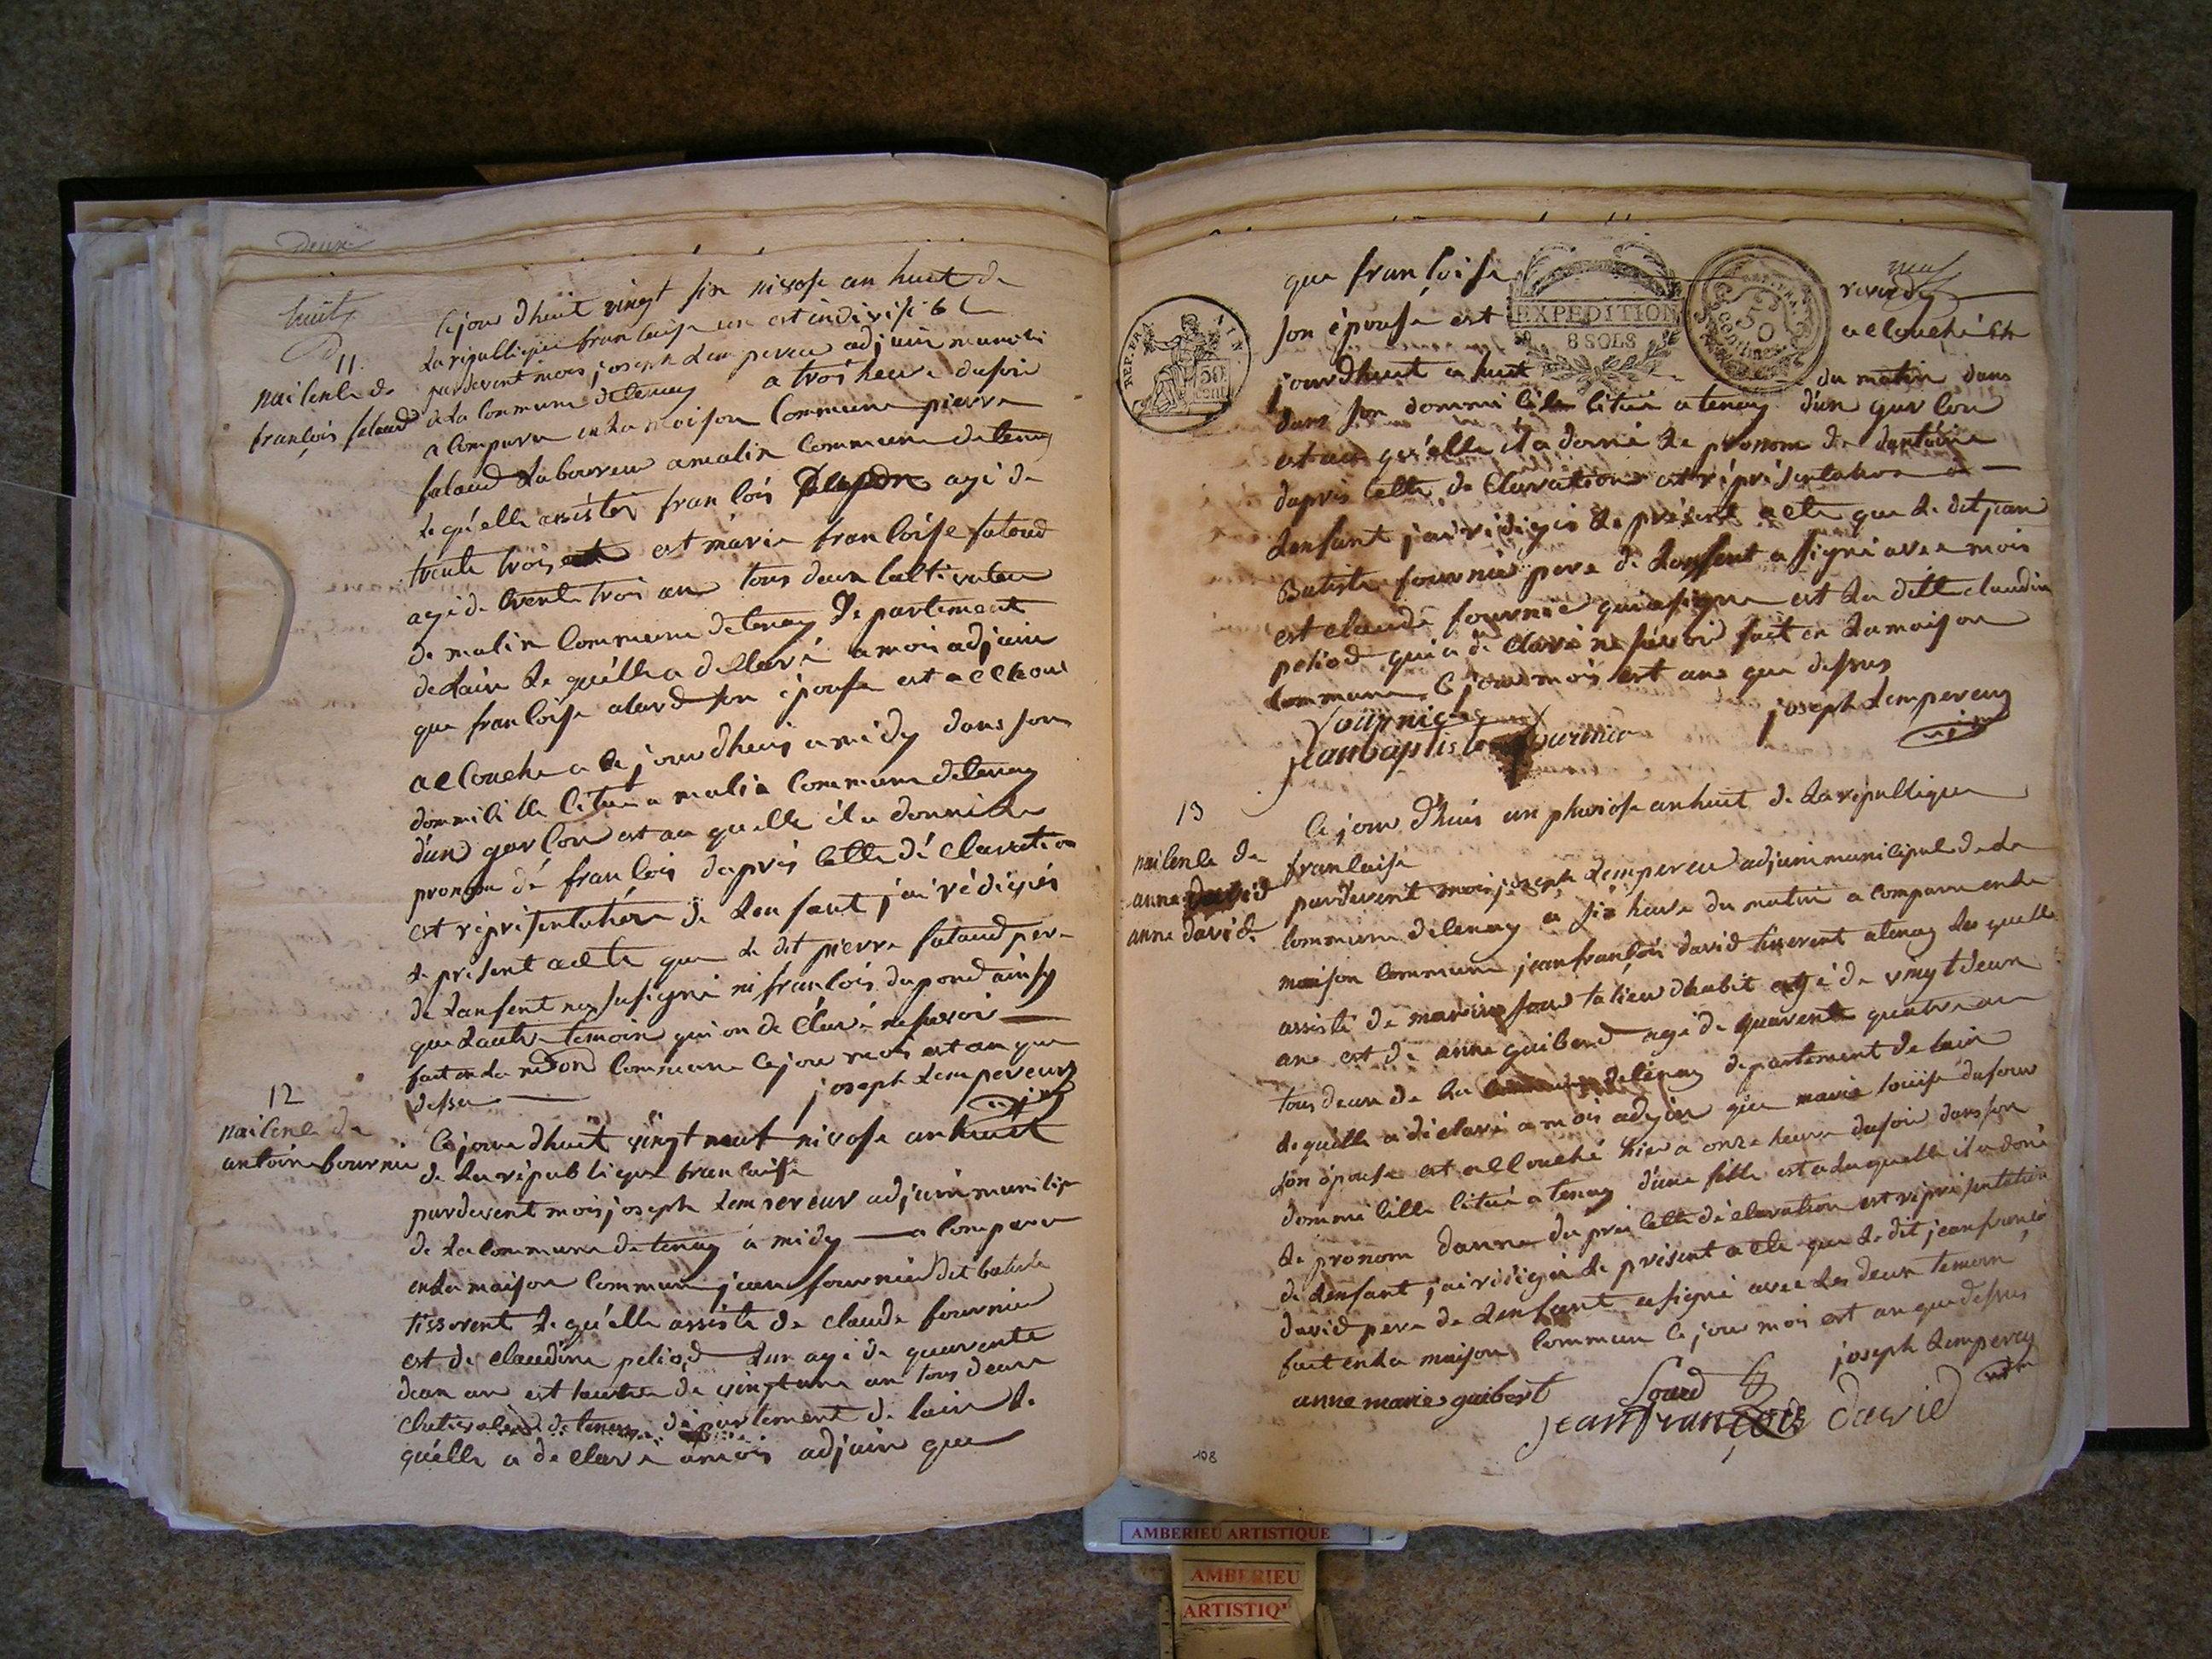 Deux
huit
11
naisence de
françois falaud
cejour dhuit vingt six nivose an huit de
La republique francaise une est indivisible
pardevent mois joseph Lempereu adjuin municipi
de La Commune de tenay a trois heure dusoir
a Comparu en La Maison Commune pierre
falaud Laboureur amalix Commune de tenay
Le quélle assisté françois agé de
trente trois est marie francoise falaud
agé de trente trois ans tous deux Cultivateur
de malix Commune de tenay Departement
de Lain Le quélle a declaré a mois adjuin
que francoise alard son épouse est
accouché a ce jourdhuis a midy dans son
dommicille citué a malix Commune de tenay
d'un garcon est au quelle il a donné Le
pronom dé francois daprés cette déclaration
est représentation de Lenfant jai rédigés
Le présent acte que Le dit pierre falaud pere
de Lanfent na susigné ni françois dupond ainsy
que Lautre temoin qui on declaré ne savoir
fait en La maison Commune cejour mois est an que
dessu joseph Lempereur
12
naisence de
antoine fournie
cejour dhuit vingt neuf nivose an huit
de La république francaise
pardevent mois joseph Lempereur adjuin municip
de La Commune de tenay a midy a Comparu
en La maison Commune jean fournier dit batiste
tisserent Le quélle assisté de claude fournier
est de claudine peliod Lun agé de quarente
deux an est Lautre de vingt une an tous deux
Cultivateur de tenay département de Lain Le
quélle a declaré a mois adjuin que
neuf
que françoise reverdy
son épouse est accouché ce
jourdhuit a huit du matin dans
dans son dommicile citué a tenay d'un garcon
est au quélle il a donné Le pronom de dantoine
daprés cette declaration est réprésentation de
Lenfant jai rédigés Le présent acte que Le dit jean
Batiste fournié pere de Lenfent a signé avec mois
est claude fournié qui a signé est La ditte claudine
peliod qui a déclaré ne savoir fait en La maison
Commune ce jour mois est ans que dessus
fournier joseph Lempereur
jeanbaptiste fournier
REP. FRA
50
cent
EXPEDITION
8 SOLS
50
centimes
13
naisence de
anne david
anne david
ce jour d'huis un pluviose an huit de La république
francaise
pardevent mois joseph Lempereu adjuin municipal de La
Commune de tenay a six heure du matin a comparu en La
maison Commune jean françois david tisserent a tenay Les quelle
assisté de mariin sourd talieu dhabit agé de vingt deux
ans est de anne guiberd agé de quarente quatre an
tous deux de La Commune de tenay departement de Lain
Le quélle a déclaré a mois adjuin que marie Louise dufour
son épouse est accouché hier a onze heure dusoir dans son
dommicille citué a tenay d'une fille est a Laquelle il a doné
Le pronom danne du prés cette déclaration est représentation
de Lenfant jai rédigé Le présent acte que Le dit jean francois
david pere de Lenfant a signé avec Les deux temoin
fait en La maison Commune ce jour mois est an que dessus
joseph Lempereur
anne marie guibert Sourd
jean françois david
108
AMBERIEU ARTISTIQUE
AMBERIEU
ARTISTIQ